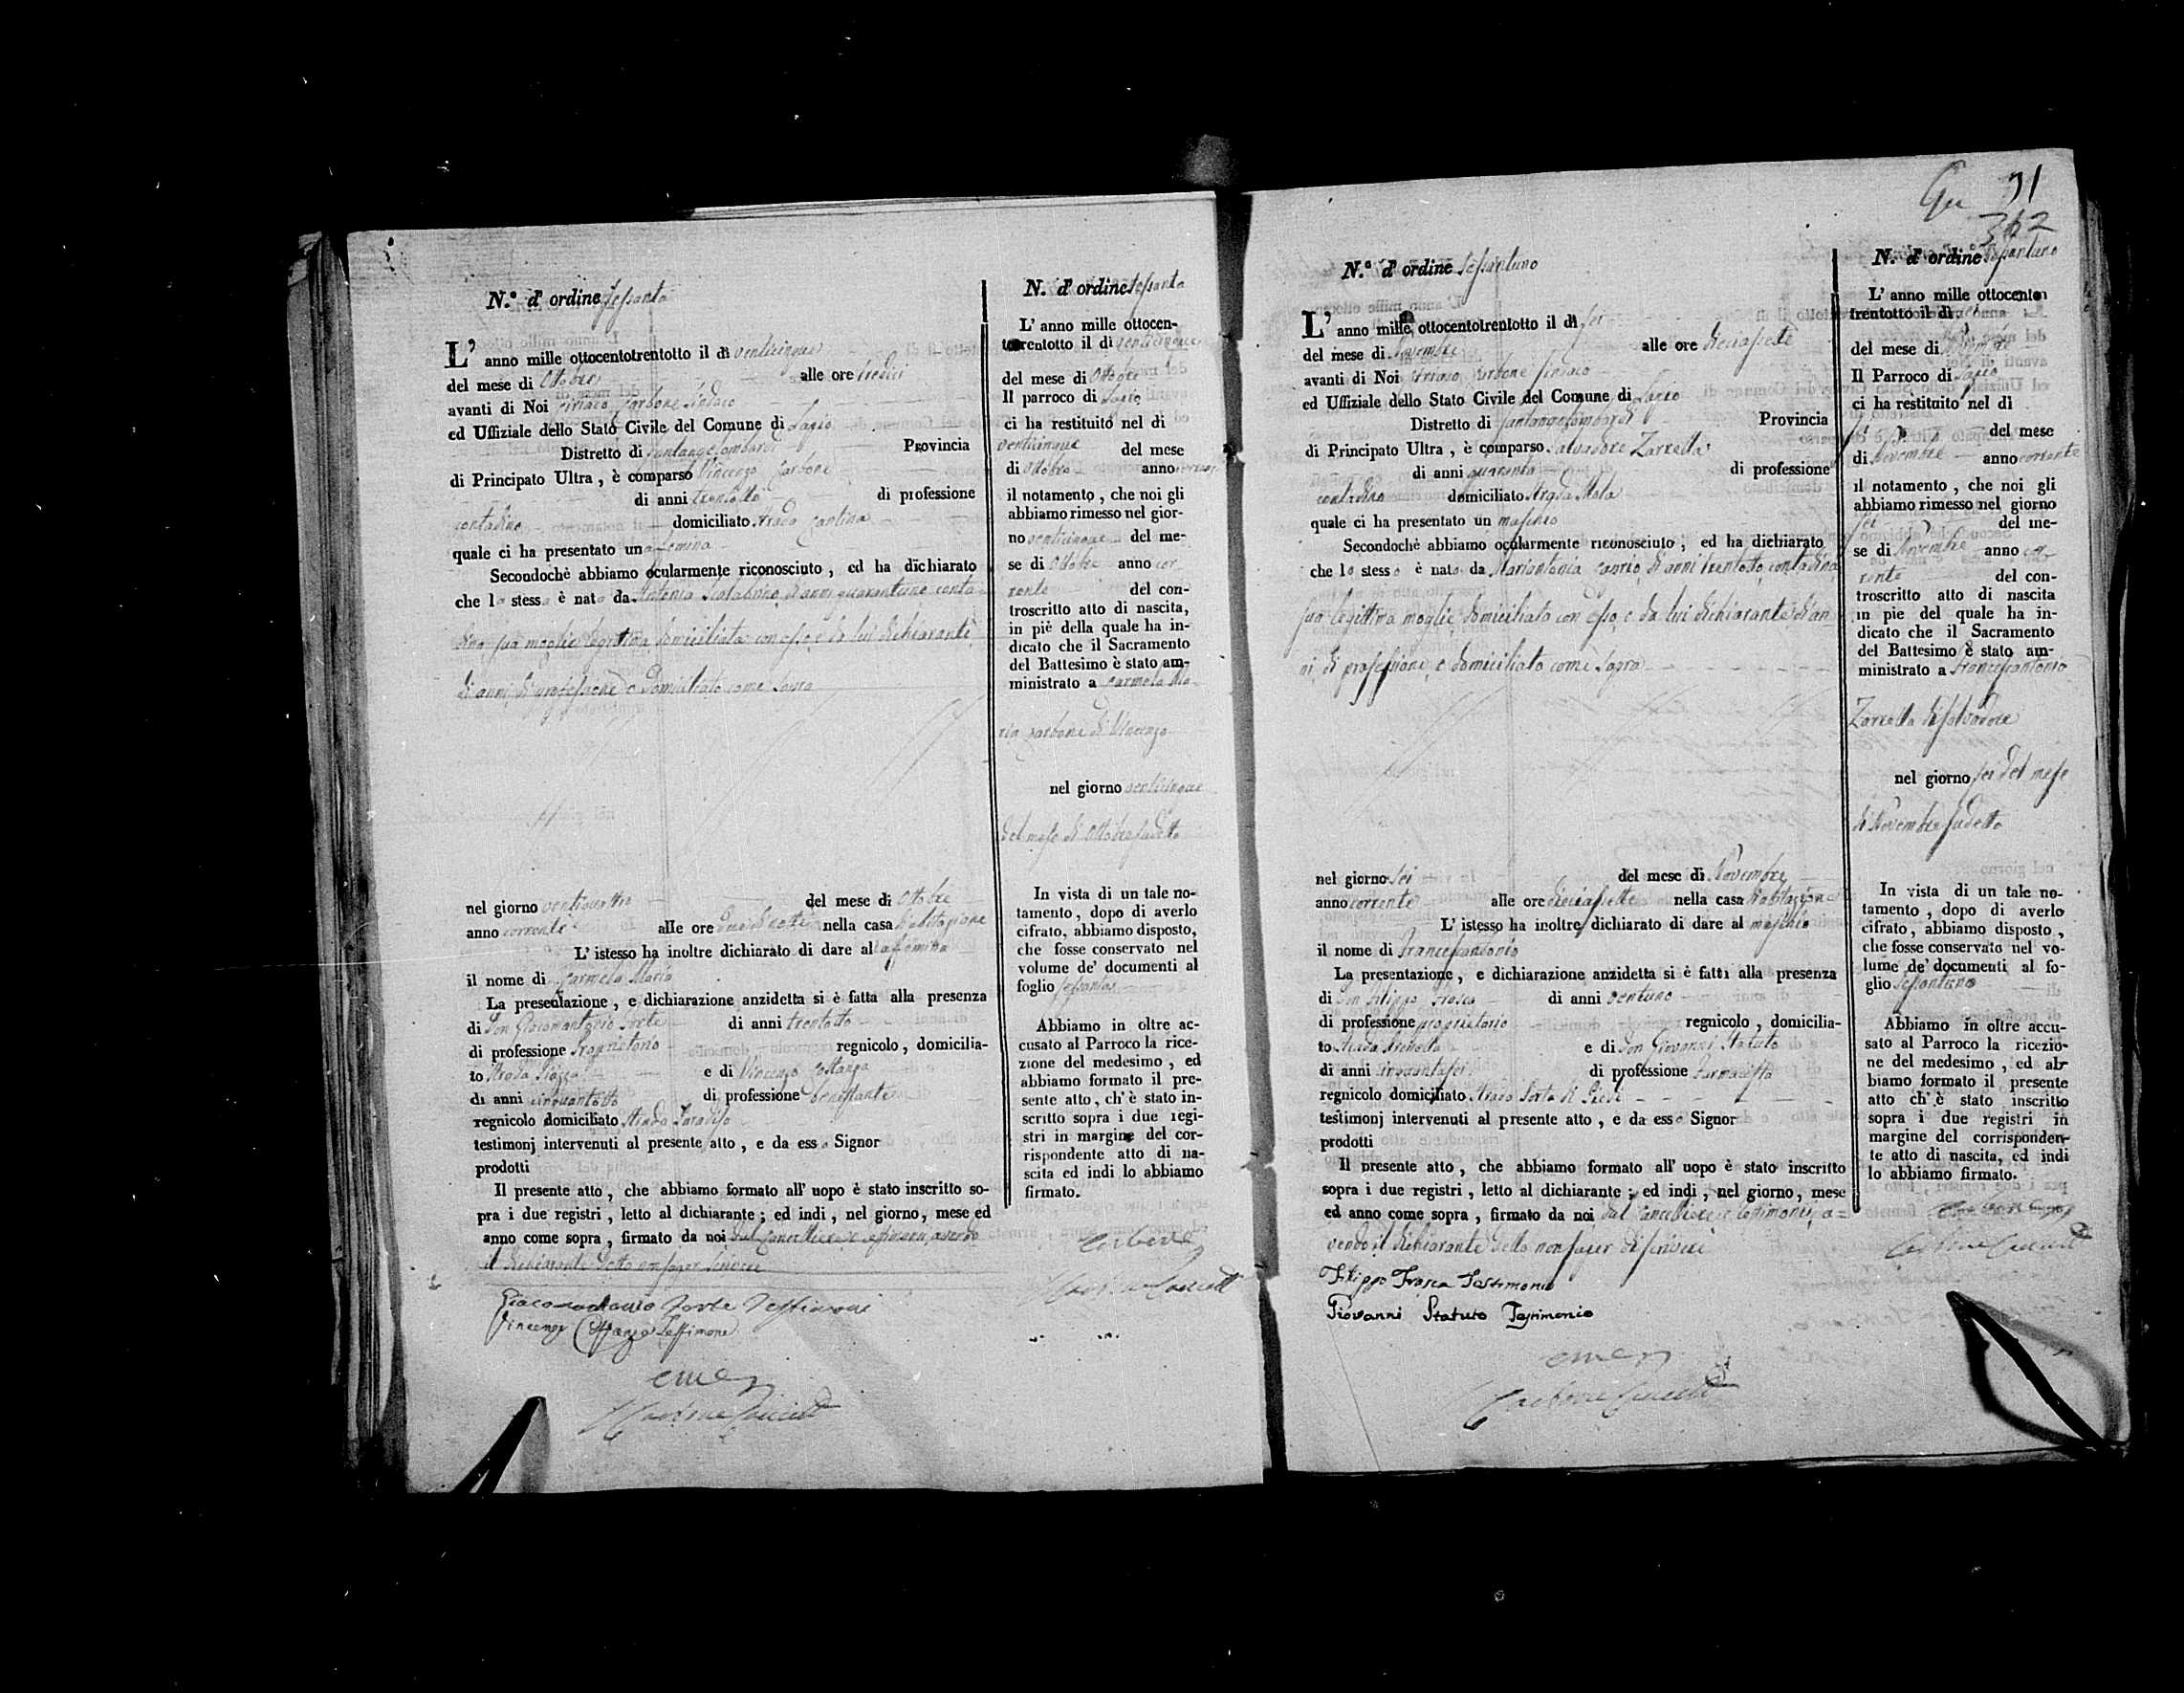 N.º d' ordine sessanta
L' anno mille ottocentotrentotto il di venticinque
del mese di Ottobre alle ore tredici
avanti di Noi Ciriaco Carbone Sindaco
ed Uffiziale dello Stato Civile del Comune di Lapio
Distretto di Santangelolombardi Provincia
di Principato Ultra, è comparso Vincenzo Carbone
di anni trentotto di professione
contadino domiciliato strada Cantina
quale ci ha presentato una femina
Secondochè abbiamo ocularmente riconosciuto, ed ha dichiarato
che la stessa è nata da Antonia Scalabrino di anni quarantuno conta-
dina sua moglie legittima domiciliata con esso, e da lui dichiarante
di anni, di professione e domiciliato come sopra
nel giorno ventiquattro del mese di Ottobre
anno corrente alle ore due di notte nella casa di abitazione
L' istesso ha inoltre dichiarato di dare alla femina
il nome di Carmela Maria
La presentazione, e dichiarazione anzidetta si è fatta alla presenza
di Don Giacomantonio Forte di anni trentotto
di professione Proprietario regnicolo, domicilia-
to strada Piazza e di Vincenzo Costanza
di anni cinquantotto di professione benestante
regnicolo domiciliato strada Paradiso
testimonj intervenuti al presente atto, e da esso Signor
prodotti
Il presente atto, che abbiamo formato all' uopo è stato inscritto so-
pra i due registri, letto al dichiarante; ed indi, nel giorno, mese ed
anno come sopra, firmato da noi dal Cancelliere e testimoni, avendo
il dichiarante detto non saper scrivere
Giacomantonio Forte Testimone
Vincenzo Costanza Testimone
N. d' ordine sessanta
L' anno mille ottocen-
totrentotto il di venticinque
del mese di Ottobre
Il parroco di Lapio
ci ha restituito nel di
venticinque del mese
di Ottobre anno corrente
il notamento, che noi gli
abbiamo rimesso nel gior-
no venticinque del me-
se di Ottobre anno cor-
rente del con-
troscritto atto di nascita,
in piè della quale ha in-
dicato che il Sacramento
del Battesimo è stato am-
ministrato a Carmela Ma-
ria Carbone di Vincenzo
nel giorno venticinque
del mese di Ottobre sudetto
In vista di un tale no-
tamento, dopo di averlo
cifrato, abbiamo disposto,
che fosse conservato nel
volume de' documenti al
foglio sessanta
Abbiamo in oltre ac-
cusato al Parroco la rice-
zione del medesimo, ed
abbiamo formato il pre-
sente atto, ch' è stato in-
scritto sopra i due regi-
stri in margine del cor-
rispondente atto di na-
scita ed indi lo abbiamo
firmato.
Carbone
31
362
N.º d' ordine sessantuno
L' anno mille ottocentotrentotto il di sei
del mese di Novembre alle ore diecassette
avanti di Noi Ciriaco Carbone Sindaco
ed Uffiziale dello Stato Civile del Comune di Lapio
Distretto di Santangelolombardi Provincia
di Principato Ultra, è comparso Salvadore Zarrella
di anni quaranta di professione
contadino domiciliato strada Mala
quale ci ha presentato un maschio
Secondochè abbiamo ocularmente riconosciuto, ed ha dichiarato
che lo stesso è nato da Mariantonia di anni trentotto, contadina
sua legittima moglie, domiciliata con esso, e da lui dichiarante di an-
ni di professione, e domiciliato come sopra
nel giorno sei del mese di Novembre
anno corrente alle ore diecissette nella casa d'abitazione
L' istesso ha inoltre dichiarato di dare al maschio
il nome di Francescantonio
La presentazione, e dichiarazione anzidetta si è fatti alla presenza
di Don Filippo Frasca di anni ventuno
di professione proprietario regnicolo, domicilia-
to strada e di Don Giovanni Statuto
di anni cinquantasei di professione Farmacista
regnicolo domiciliato strada Porta di Piedi
testimonj intervenuti al presente atto, e da esso Signor
prodotti
Il presente atto, che abbiamo formato all' uopo è stato inscritto
sopra i due registri, letto al dichiarante; ed indi, nel giorno, mese
ed anno come sopra, firmato da noi dal Cancelliere e testimoni, a=
vendo il dichiarante detto non saper di scrivere
Filippo Frasca Testimonio
Giovanni Statuto Testimonio
N. d' ordine sessantuno
L' anno mille ottocento
trentotto il di sei
del mese di Novembre
Il Parroco di Lapio
ci ha restituito nel di
sei del mese
di Novembre anno corrente
il notamento, che noi gli
abbiamo rimesso nel giorno
sei del me-
se di Novembre anno cor-
rente del con-
troscritto atto di nascita
in pie del quale ha in-
dicato che il Sacramento
del Battesimo è stato am-
ministrato a Francescantonio
Zarrella di Salvadore
nel giorno sei del mese
di Novembre sudetto
In vista di un tale no-
tamento, dopo di averlo
cifrato, abbiamo disposto,
che fosse conservato nel vo-
lume de' documenti al fo-
glio sessantuno
Abbiamo in oltre accu-
sato al Parroco la ricezio-
ne del medesimo, ed ab-
biamo formato il presente
atto ch' è stato inscritto
sopra i due registri in
margine del corrisponden-
te atto di nascita, ed indi
lo abbiamo firmato.